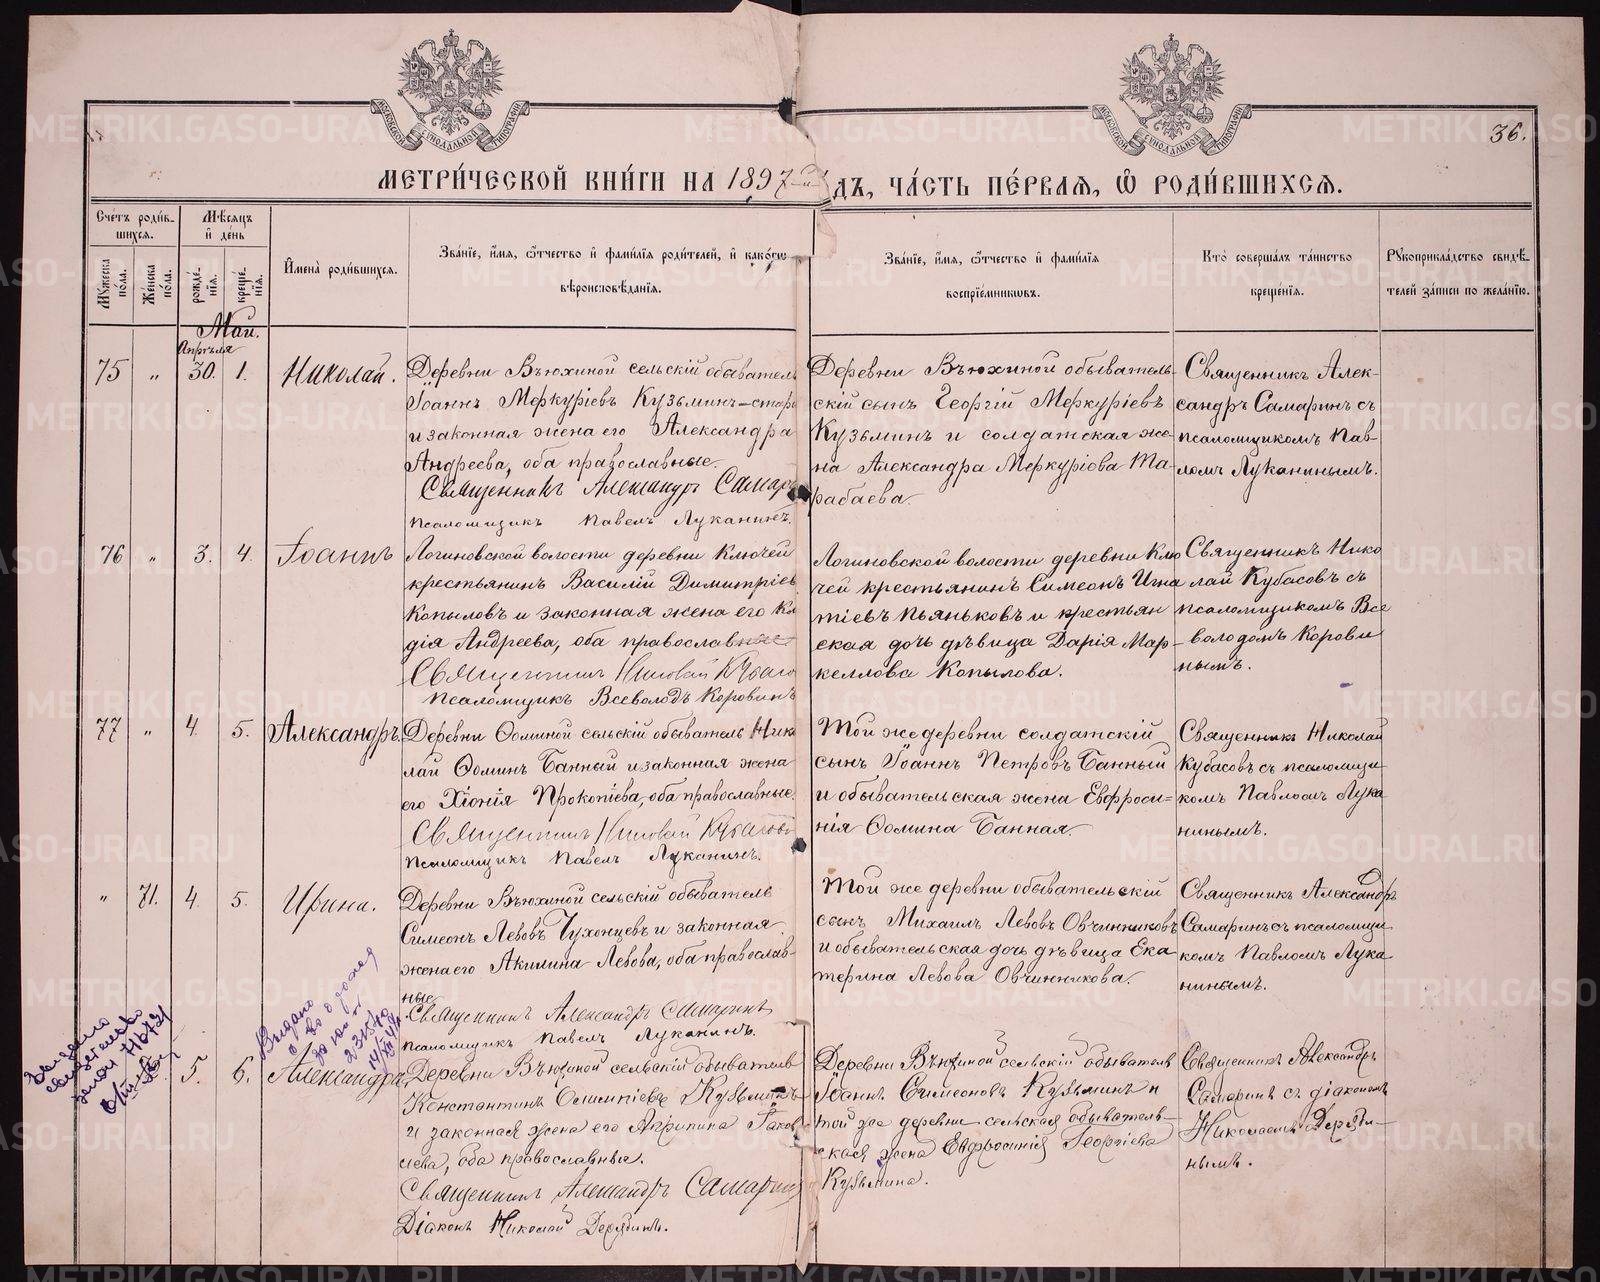 36.
МЕТРИЧЕСКОЙ КНИГИ НА 1897 ДЪ, ЧАСТЬ ПЕРВАЯ, Ѡ РОДИВШИХСЯ.
Счетъ родив-
шихся.
Мѣсяцъ
и день
Мужеска
пола.
Женска
пола.
рожде-
нія.
креще-
нія.
Имена родившихся.
Званіе, имя, ѿтчество и фамилія родителей, и какогѡ
вѣроисповѣданія.
Званіе, имя, ѿтчество и фамилія
воспріемниковъ.
Кто совершалъ таинство
крещенія.
Рукоприкладство свидѣ-
телей записи по желанію.
Май.
Апрѣля
75 „ 30. 1. Николай.
Деревни Вьюхиной сельскій обыватель
Іоаннъ Меркуріевъ Кузьминъ
и законная жена его Александра
Андреева, оба православные.
Священникъ Александръ Самар
Псаломщикъ Павелъ Луканинъ.
Деревни Вьюхиной обыватель-
скій сынъ Георгій Меркуріевъ
Кузьминъ и солдатская же-
на Александра Меркуріова Та-
рабаева
Священникъ Алек-
сандръ Самаринъ съ
псаломщикомъ Пав-
ломъ Луканинымъ.
76 „ 3. 4. Іоаннъ
Логиновской волости деревни Ключей
крестьянинъ Василій Димитріев
Копыловъ и законная жена его Кла
дія Андреева, оба православные
Священникъ Николай Кубасо
Псаломщикъ Всеволодъ Коровинъ
Логиновской волости деревни Клю
чей крестьянинъ Симеонъ Игна
тіевъ Пьяньковъ и крестьян
ская дочь дѣвица Дарія Мар-
келлова Копылова.
Священникъ Нико
лай Кубасовъ съ
псаломщикомъ Все
володомъ Корови
нымъ.
77 „ 4. 5. Александръ.
Деревни Ѳоминой сельскій обыватель Нико
лай Ѳоминъ Банный и законная жена
его Хіонія Прокопіева, оба православные.
Священникъ Николай Кубасовъ
Псаломщикъ Павелъ Луканинъ.
Той же деревни солдатскій
сынъ Іоаннъ Петровъ Банный
и обывательская жена Евфроси-
нія Ѳомина Банная.
Священникъ Николай
Кубасовъ съ псаломщи
комъ Павломъ Лука
нинымъ.
„ 71. 4. 5. Ирина.
Деревни Вьюхиной сельскій обыватель
Симеонъ Левовъ Чухонцевъ и законная
жена его Акилина Левова, оба православ-
ные.
Священникъ Александръ Самаринъ
Псаломщикъ Павелъ Луканинъ.
Той же деревни обывательскій
сынъ Михаилъ Левовъ Овчинниковъ
и обывательская дочь дѣвица Ека
терина Левова Овчинникова.
Священникъ Александръ
Самаринъ съ псаломщи
комъ Павломъ Лука
нинымъ.
Выдано
5. 6. Александра,
Деревни Вьюхиной сельскій обыватель
Константинъ Олимпіевъ Кузьминъ
и законная жена его Агрипина Іаков
лева, оба православные.
Священникъ Александръ Самаринъ
Діаконъ Николай Дерябинъ.
Деревни Вьюхиной сельскій обыватель
Іоаннъ Симеоновъ Кузьминъ и
той же деревни сельская обыватель-
ская жена Евфросинія Георгіева
Кузьмина.
Священникъ Александръ
Самаринъ съ діакономъ
Николаемъ Деряби-
нымъ.
METRIKI.GASO-URAL.RU